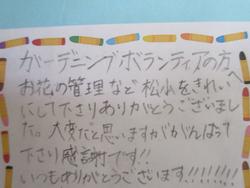 ガーデニングボランティアの方へ
お花の管理など松小をきれい
にして下さりありがとうございまし
た。大変だと思いますががんばって
下さり感謝です!!
いつもありがとうございます!!!!!!!